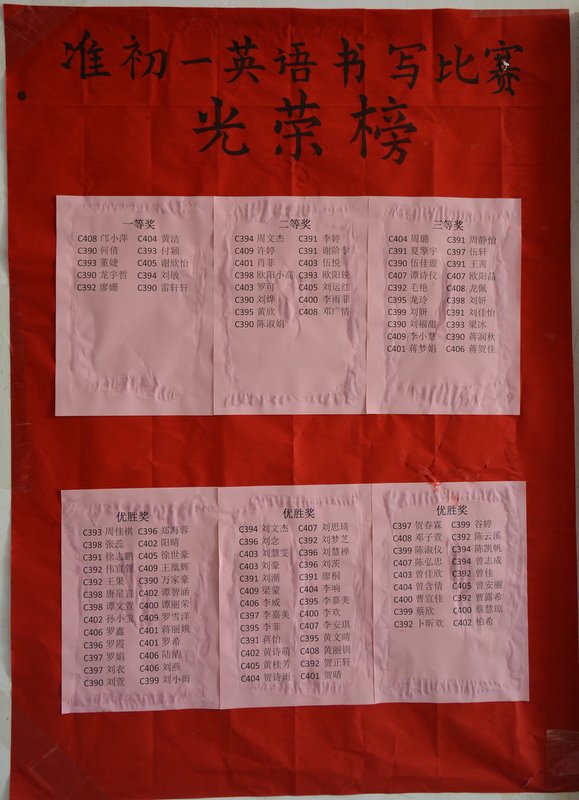 准初一英语书写比赛
光荣榜
一等奖
C408 邝小萍 C404 黄洁
C390 何倩 C393 付颖
C393 董婕 C405 谢欣怡
C390 龙宇哲 C394 刘敏
C392 廖姗 C390 雷轩轩
二等奖
C394 周文杰 C391 李婷
C409 许婷 C391 谢阶学
C401 肖菲 C403 伍悦
C398 欧阳小高 C393 欧阳锐
C403 罗可 C405 刘运红
C390 刘烨 C400 李雨菲
C395 黄欣 C408 邓广情
C390 陈淑娟
三等奖
C404 周璐 C391 周静怡
C391 夏擎宇 C397 伍轩
C390 伍佳璇 C391 王茜
C407 谭诗仪 C407 欧阳晶
C392 毛艳 C408 龙佩
C395 龙玲 C398 刘妍
C399 刘妍 C391 刘佳怡
C390 刘福甜 C393 梁冰
C409 李小慧 C390 蒋润秋
C401 蒋梦娟 C406 蒋贺佳
优胜奖
C393 周佳祺 C396 郑海蓉
C398 张蕊 C402 阳晴
C391 徐志鹏 C405 徐世豪
C392 伟宣萱 C409 王凰辉
C392 王果 C390 万家豪
C398 唐星吉 C402 谭智涵
C398 谭文萱 C400 谭丽荣
C402 孙小宝 C409 罗雪洋
C406 罗鑫 C401 蒋丽娥
C396 罗霞 C401 罗希
C397 罗娟 C406 陆洁
C397 刘衣 C406 刘燕
C390 刘萱 C399 刘小雨
优胜奖
C394 刘文杰 C407 刘思琦
C396 刘念 C392 刘梦芝
C403 刘慧雯 C396 刘慧禅
C403 刘豪 C396 刘茨
C391 刘潮 C391 廖桐
C409 梁蒙 C404 李响
C406 李威 C395 李嘉美
C397 李嘉美 C400 李欢
C395 李菲 C407 李安琪
C391 蒋怡 C395 黄文晴
C402 黄诗萌 C408 黄丽钼
C405 黄桂芳 C392 贺正轩
C404 贺诗雨 C401 贺晴
优胜奖
C397 贺春霖 C399 谷婷
C408 邓子萱 C392 陈云溪
C399 陈淑仪 C394 陈凯帆
C407 陈弘忠 C394 曾志成
C403 曾佳欣 C392 曾佳
C404 曾含倩 C405 曾安丽
C400 曹宣佳 C392 曹露希
C399 蔡欣 C400 蔡慧琼
C392 卜听欢 C402 柏希